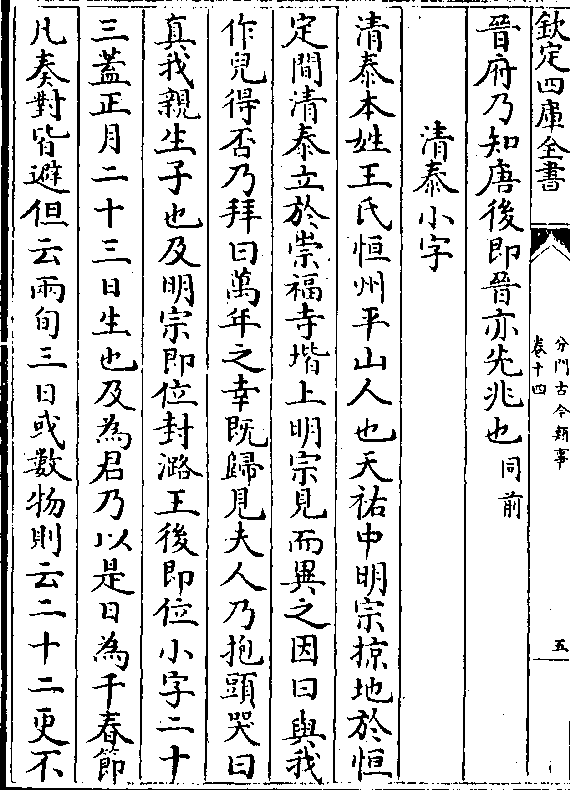 欽定四庫全書
分門古今類事
卷十四
五
晉府乃知唐後即晉亦先兆也同前
清泰小字
清泰本姓王氏恒州平山人也天祐中明宗掠地於恒
定間清泰立於崇福寺堦上明宗見而異之因曰與我
作兒得否乃拜曰萬年之幸既歸見夫人乃抱頭哭曰
真我親生子也及明宗即位封潞王後即位小字二十
三蓋正月二十三日生也及為君乃以是日為千春節
凡奏對皆避但云兩旬三日或數物則云二十二更不